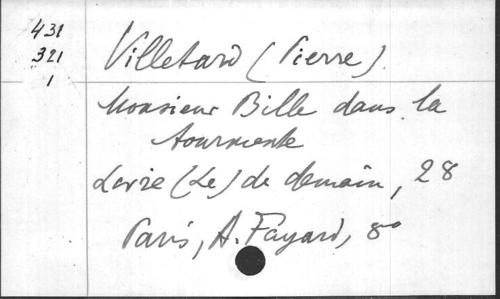 431
321
1
Villetard (Pierre)
Monsieur Bille dans la
tourmente
Livre (Le) de demain, 28
Paris, A. Fayard, 8°